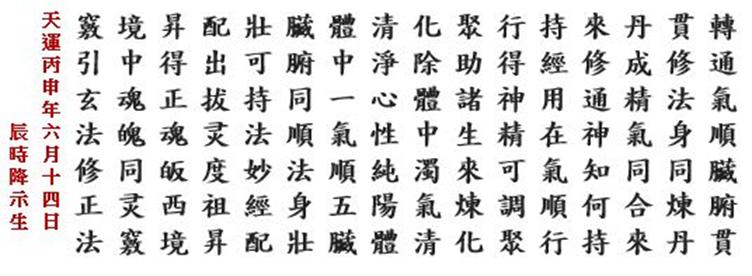 轉通氣順臟腑貫
貫修法身同煉丹
丹成精氣同合來
來修通神知何持
持經用在氣順行
行得神精可調聚
聚助諸生來煉化
化除體中濁氣清
清淨心性純陽體
體中一氣順五臟
臟腑同順法身壯
壯可持法妙經配
配出拔灵度祖昇
昇得正魂皈西境
境中魂魄同灵竅
竅引玄法修正法
天運丙申年六月十四日
辰時降示生